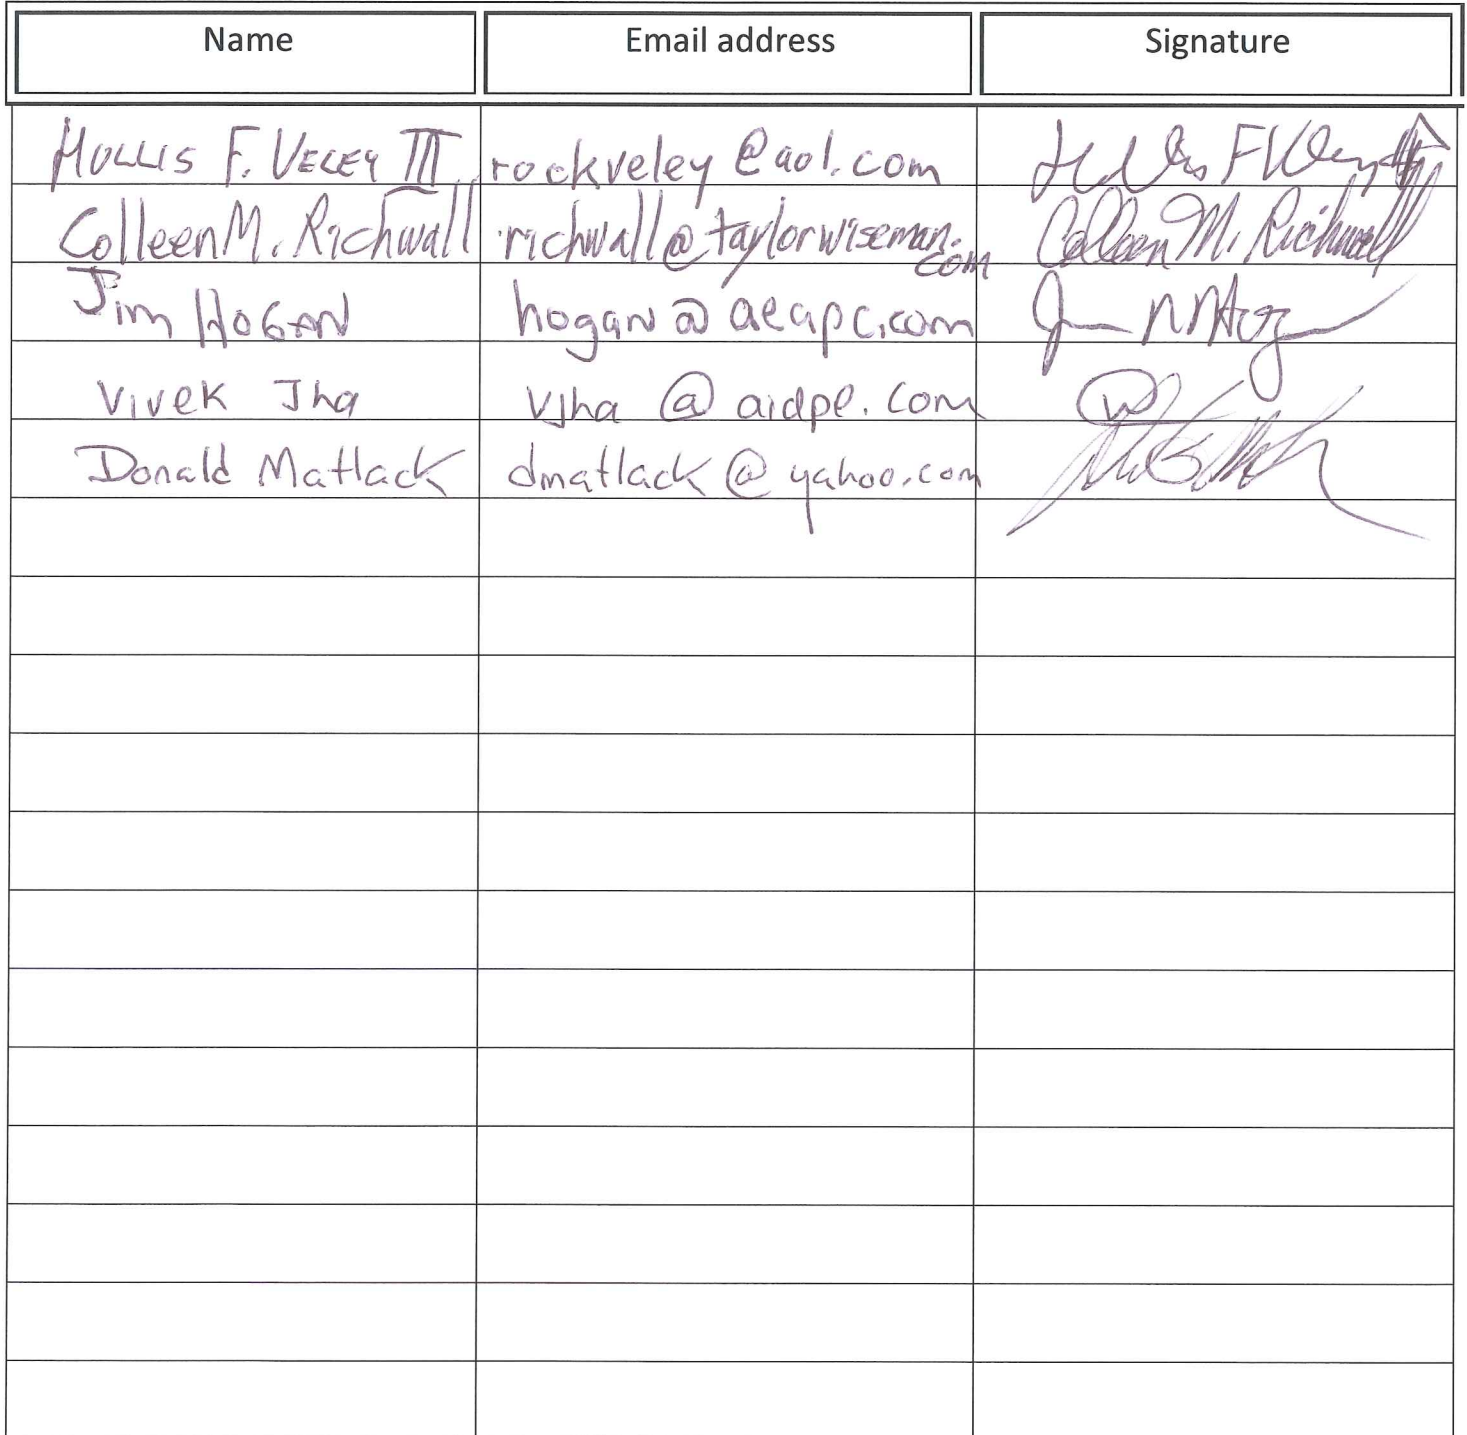 Name Email address Signature
Hollis F. Veley III rockveley@aol.com Hollis F Veley III
Colleen M. Richwall richwall@taylorwiseman.com Colleen M. Richwall
Jim Hogan hogan@aeapc.com
Vivek Jha vjha@aidpe.com
Donald Matlack dmatlack@yahoo.com